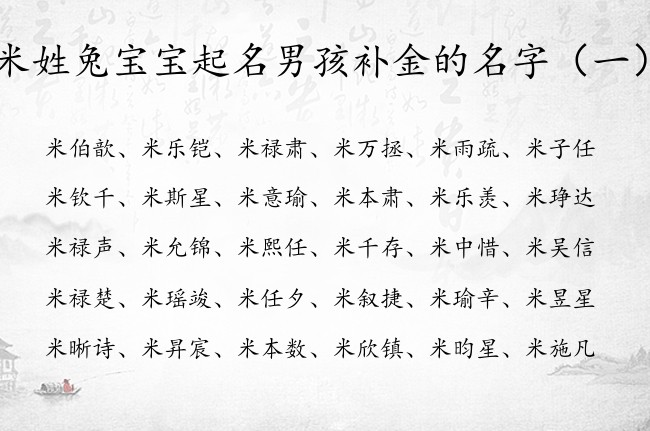 米姓兔宝宝起名男孩补金的名字（一）
米伯歆、米乐铠、米禄肃、米万拯、米雨疏、米子任
米钦千、米斯星、米意瑜、米本肃、米乐羡、米琤达
米禄声、米允锦、米熙任、米千存、米中惜、米吴信
米禄楚、米瑶竣、米任夕、米叙捷、米瑜辛、米昱星
米晰诗、米昇宸、米本数、米欣镇、米昀星、米施凡